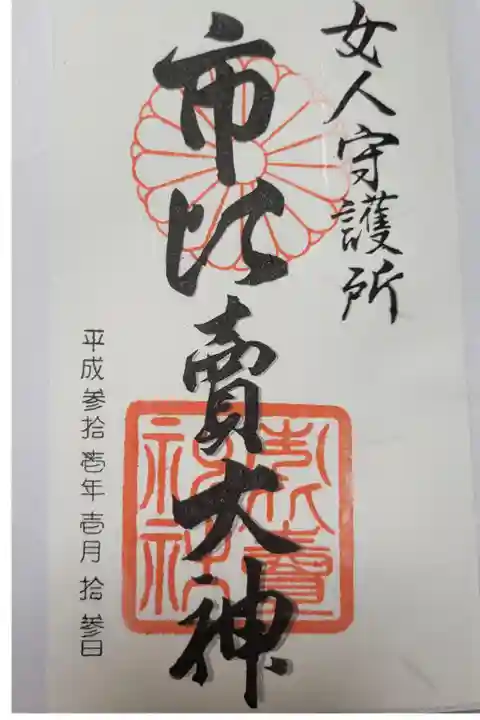 女人守護所
市比賣大神
市比賣神社
平成参拾壱年壱月拾参日